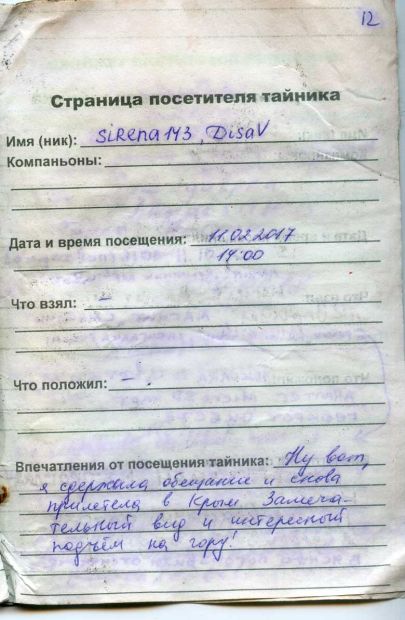 12
Страница посетителя тайника
Имя (ник): Sirena143, DisaV
Компаньоны:
Дата и время посещения: 11.02.2017
14:00
Что взял: –
Что положил: – .
Впечатления от посещения тайника: Ну вот,
я сдержала обещание и снова
прилетела в Крым. Замеча-
тельный вид и интересный
подъём на гору!